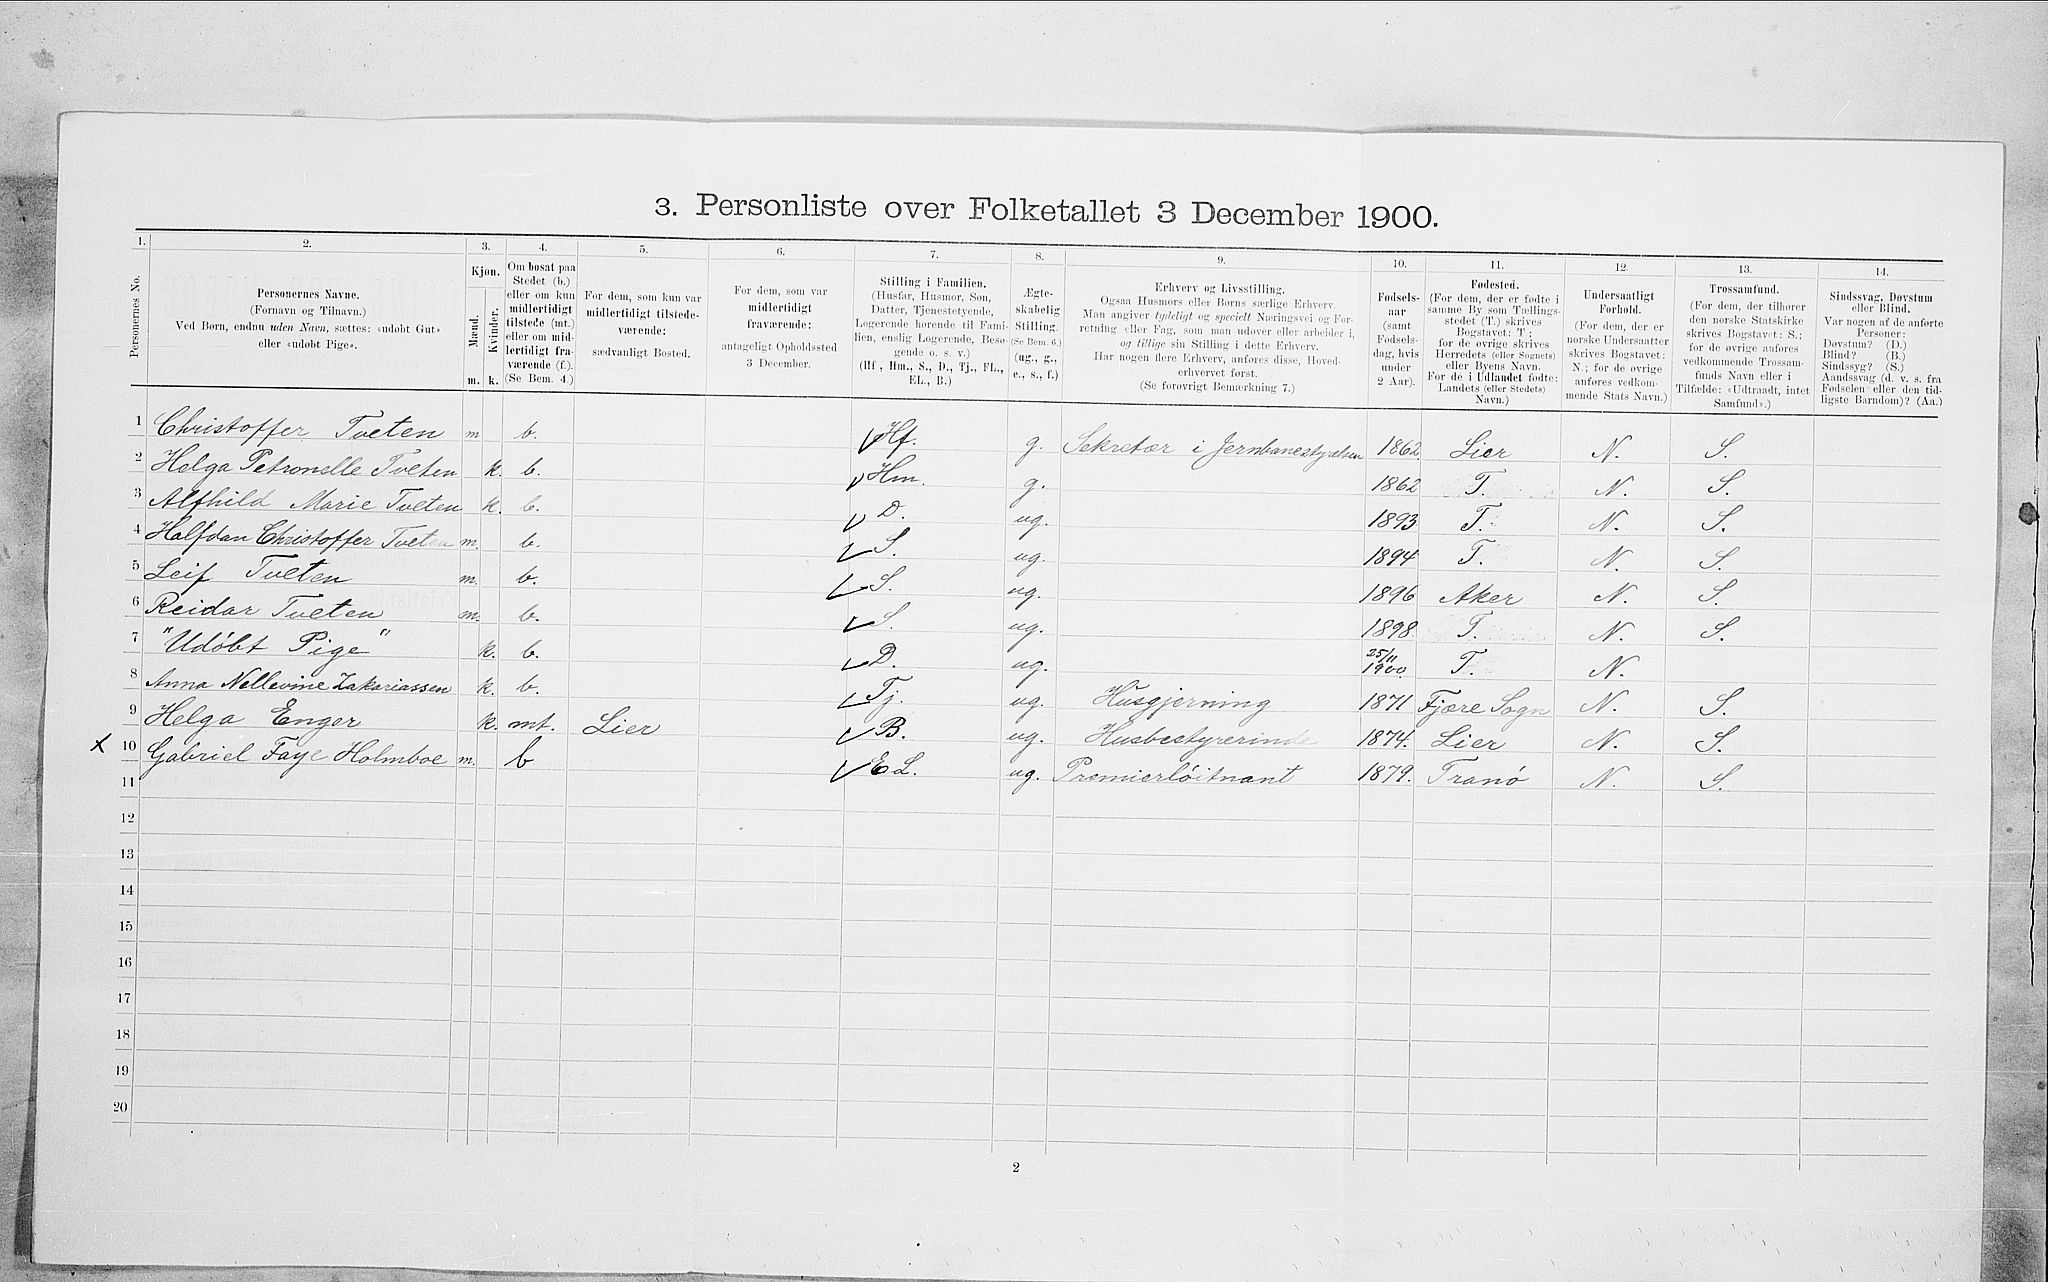 3. Personliste over Folketallet 3 December 1900.
1. 2. 3. 4. 5. 6. 7. 8. 9. 10. 11. 12. 13. 14.
Personernes No.
Personernes Navne.
(Fornavn og Tilnavn.)
Ved Børn, endnu uden Navn, sættes: «udøbt Gut»
eller «udøbt Pige».
Kjøn.
Mænd.
Kvinder.
m. k.
Om bosat paa
Stedet (b.)
eller om kun
midlertidigt
tilstede (mt.)
eller om mid-
lertidigt fra-
værende (f.).
(Se Bem. 4.)
For dem, som kun var
midlertidigt tilstede-
værende:
sædvanligt Bosted.
For dem, som var
midlertidigt
fraværende:
antageligt Opholdssted
3 December.
Stilling i Familien.
(Husfar, Husmor, Søn,
Datter, Tjenestetyende,
Logerende hørende til Fami-
lien, enslig Logerende, Besø-
gende o. s. v.)
(Hf, Hm., S., D., Tj., FL.,
EL., B.)
Ægte-
skabelig
Stilling.
(Se Bem. 6.)
(ug., g.,
e., s., f.)
Erhverv og Livsstilling.
Ogsaa Husmors eller Børns særlige Erhverv.
Man angiver tydeligt og specielt Næringsvei og For-
retning eller Fag, som man udover eller arbeider i,
og tillige sin Stilling i dette Erhverv.
Har nogen flere Erhverv, anføres disse, Hoved-
erhvervet først.
(Se forøvrigt Bemærkning 7.)
Fødsels-
aar
(samt
Fødsels-
dag, hvis
under
2 Aar).
Fødested.
(For dem, der er fødte i
samme By som Tællings-
stedet (T.) skrives
Bogstavet: T.;
for de øvrige skrives
Herredets (eller Sognets)
eller Byens Navn.
For de i Udlandet fødte:
Landets (eller Stedets)
Navn.)
Undersaatligt
Forhold.
(For dem, der er
norske Undersaatter
skrives Bogstavet:
N.; for de øvrige
anføres vedkom-
mende Stats Navn.)
Trossamfund.
(For dem, der tilhører
den norske Statskirke
skrives Bogstavet: S.;
for de øvrige anføres
vedkommende Trossam-
funds Navn eller i
Tilfælde: «Udtraadt, intet
Samfund».)
Sindssvag, Døvstum
eller Blind.
Var nogen af de anførte
Personer:
Døvstum? (D.)
Blind? (B.)
Sindssyg? (S.)
Aandssvag (d. v. s. fra
Fødselen eller den tid-
ligste Barndom)? (Aa.)
1 Christoffer Tveten m b. Hf. g. Sekretær i Jernbanestyrelsen 1862 Lier N. S.
2 Helga Petronelle Tveten k. b. Hm. g. 1862 T. N. S.
3 Alfhild Marie Tveten k. b. D. ug. 1893 T. N. S.
4 Halfdan Christoffer Tveten m. b. S. ug. 1894 T. N. S.
5 Leif Tveten m. b. S. ug. 1896 Aker N. S.
6 Reidar Tveten m. b. S. ug. 1898 T. N. S.
7 "Udøbt Pige" k. b. D. ug. 25/11 1900 T. N.
8 Anna Nellevine Zakariassen k. b. Tj. ug. Husgjerning 1871 Fjære Sogn N. S.
9 Helga Enger k. mt. Lier B. ug. Husbestyrerinde 1874. Lier N. S.
x 10 Gabriel Faye Holmboe m. b EL. ug. Premierløitnant 1879. Tranø N. S.
11
12
13
14
15
16
17
18
19
20
2